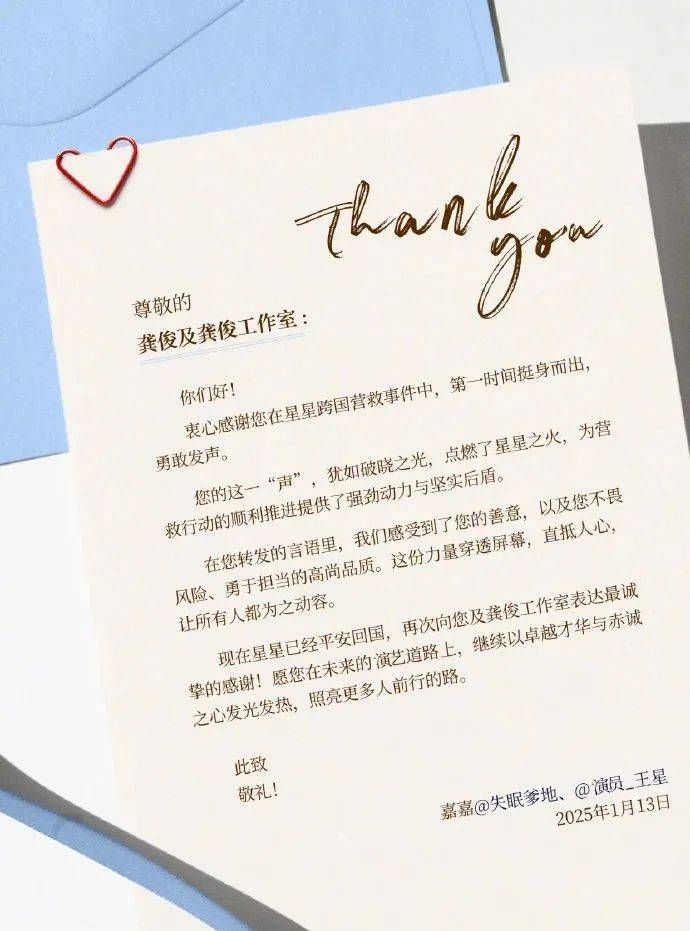 Thank
you
尊敬的
龚俊及龚俊工作室：
你们好！
衷心感谢您在星星跨国营救事件中，第一时间挺身而出，
勇敢发声。
您的这一“声”，犹如破晓之光，点燃了星星之火，为营
救行动的顺利推进提供了强劲动力与坚实后盾。
在您转发的言语里，我们感受到了您的善意，以及您不畏
风险、勇于担当的高尚品质。这份力量穿透屏幕，直抵人心，
让所有人都为之动容。
现在星星已经平安回国，再次向您及龚俊工作室表达最诚
挚的感谢！愿您在未来的演艺道路上，继续以卓越才华与赤诚
之心发光发热，照亮更多人前行的路。
此致
敬礼！
嘉嘉@失眠爹地、@演员_王星
2025年1月13日